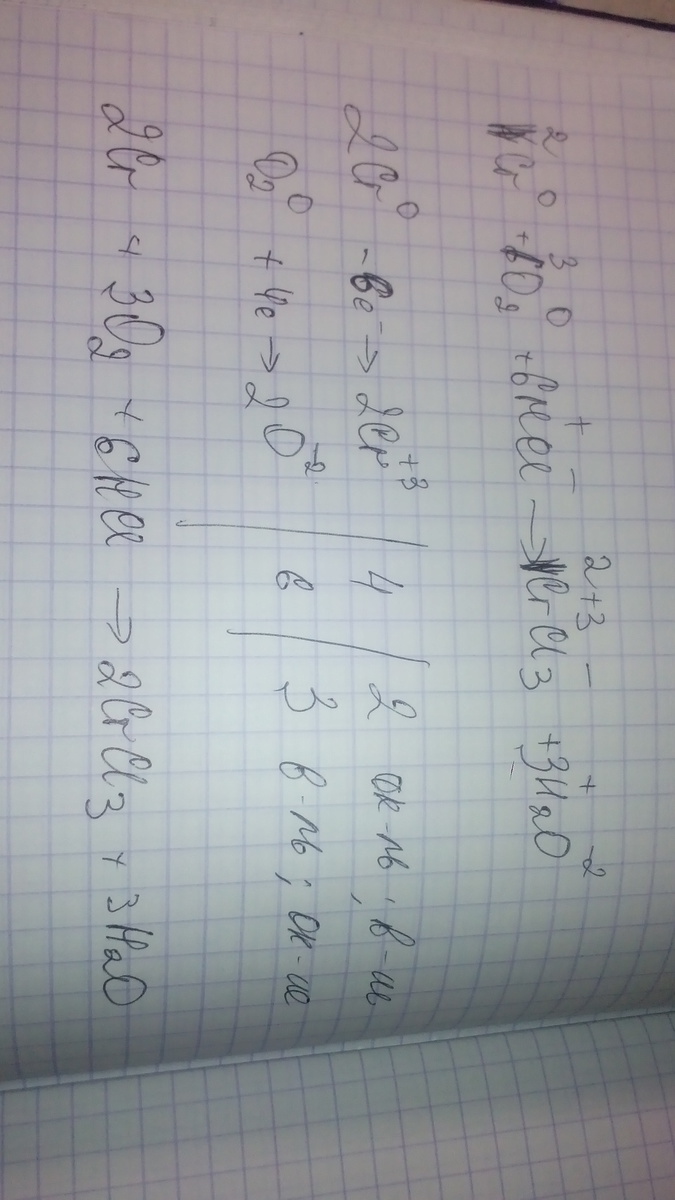 2Cr⁰ + 3O₂⁰ + 6H⁺Cl⁻ → 2Cr⁺³Cl₃⁻ + 3H₂⁺O⁻²
2Cr⁰ - 6e⁻ → 2Cr⁺³ | 4 | 2 ок-ль; в-ие
O₂⁰ + 4e → 2O⁻² | 6 | 3 в-ль; ок-ие
2Cr + 3O₂ + 6HCl → 2CrCl₃ + 3H₂O